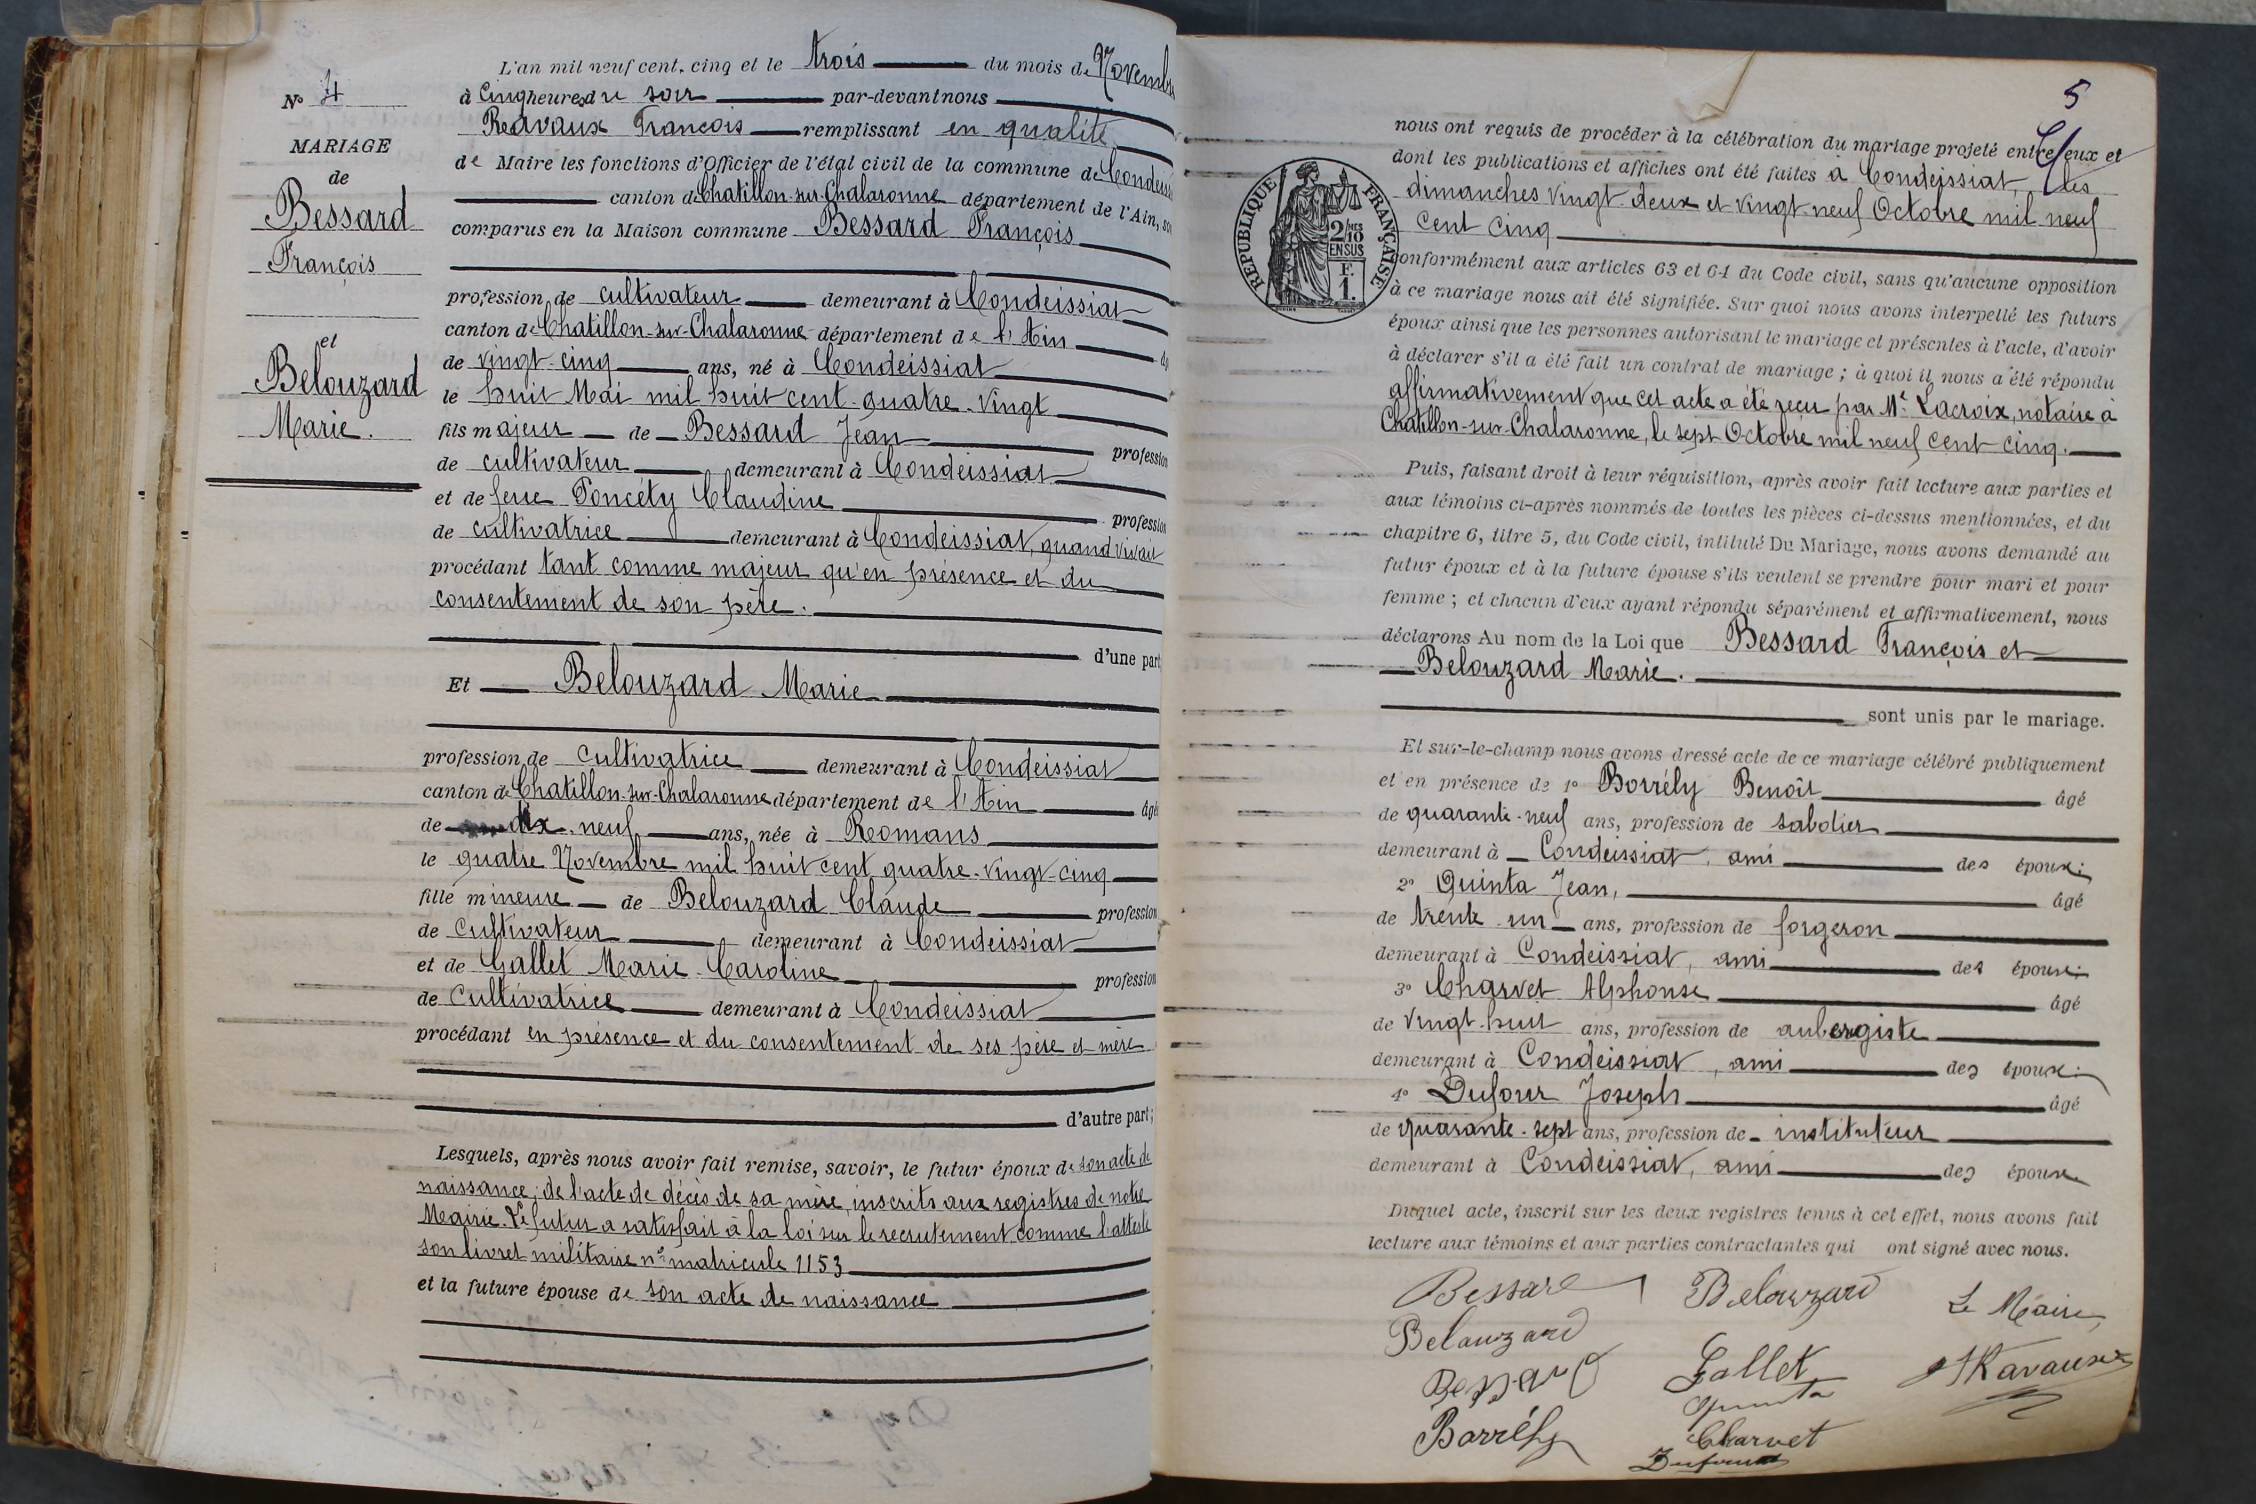 L'an mil neuf cent, cinq et le trois du mois de Novembre
à cinq heures du soir par-devant nous
Ravaux François remplissant en qualité
de Maire les fonctions d'Officier de l'état civil de la commune de Condeissiat
canton de Chatillon-sur-Chalaronne département de l'Ain, sont
comparus en la Maison commune Bessard François
profession de cultivateur demeurant à Condeissiat
canton de Chatillon-sur-Chalaronne département de l'Ain
de vingt-cinq ans, né à Condeissiat
le huit Mai mil huit cent quatre-vingt
fils majeur de Bessard Jean profession
de cultivateur demeurant à Condeissiat
et de feue Poncéty Claudine profession
de cultivatrice demeurant à Condeissiat, quand vivait
procédant tant comme majeur qu'en présence et du
consentement de son père.
d'une part
Et Belouzard Marie
profession de cultivatrice demeurant à Condeissiat
canton de Chatillon-sur-Chalaronne département de l'Ain âgée
de dix-neuf ans, née à Romans
le quatre Novembre mil huit cent quatre-vingt-cinq
fille mineure de Belouzard Claude profession
de cultivateur demeurant à Condeissiat
et de Gallet Marie Caroline profession
de cultivatrice demeurant à Condeissiat
procédant en présence et du consentement de ses père et mère
d'autre part;
Lesquels, après nous avoir fait remise, savoir, le futur époux de son acte de
naissance, de l'acte de décès de sa mère, inscrits aux registres de notre
Mairie. Le futur a satisfait à la loi sur le recrutement comme l'atteste
son livret militaire no matricule 1153
et la future épouse de son acte de naissance
No 4
MARIAGE
de
Bessard
François
et
Belouzard
Marie.
5
nous ont requis de procéder à la célébration du mariage projeté entre eux et
dont les publications et affiches ont été faites à Condeissiat, les
dimanches vingt-deux et vingt-neuf Octobre mil neuf
cent cinq
REPUBLIQUE FRANÇAISE
2/10
EN SUS
F.
1.
conformément aux articles 63 et 64 du Code civil, sans qu'aucune opposition
à ce mariage nous ait été signifiée. Sur quoi nous avons interpellé les futurs
époux ainsi que les personnes autorisant le mariage et présentes à l'acte, d'avoir
à déclarer s'il a été fait un contrat de mariage ; à quoi il nous a été répondu
affirmativement que cet acte a été reçu par Me Lacroix, notaire à
Chatillon-sur-Chalaronne, le sept Octobre mil neuf cent cinq.
Puis, faisant droit à leur réquisition, après avoir fait lecture aux parties et
aux témoins ci-après nommés de toutes les pièces ci-dessus mentionnées, et du
chapitre 6, titre 5, du Code civil, intitulé Du Mariage, nous avons demandé au
futur époux et à la future épouse s'ils veulent se prendre pour mari et pour
femme ; et chacun d'eux ayant répondu séparément et affirmativement, nous
déclarons Au nom de la Loi que Bessard François et
Belouzard Marie.
sont unis par le mariage.
Et sur-le-champ nous avons dressé acte de ce mariage célébré publiquement
et en présence de 1o Borrély Benoît âgé
de quarante-neuf ans, profession de sabotier
demeurant à Condeissiat, ami des époux;
2o Quinta Jean, âgé
de trente un ans, profession de forgeron
demeurant à Condeissiat, ami des époux;
3o Charvet Alphonse âgé
de vingt-huit ans, profession de aubergiste
demeurant à Condeissiat, ami des époux;
4o Dufour Joseph âgé
de quarante-sept ans, profession de instituteur
demeurant à Condeissiat, ami des époux
Duquel acte, inscrit sur les deux registres tenus à cet effet, nous avons fait
lecture aux témoins et aux parties contractantes qui ont signé avec nous.
Bessard Belouzard Le Maire,
Belouzard
Bessard Gallet Ravaux
Quinta
Borrély Charvet
Dufour